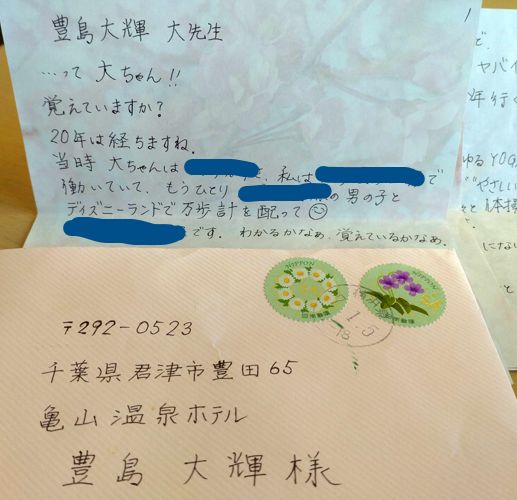 豊島大輝 大先生
…って 大ちゃん!!
覚えていますか?
20年は経ちますね.
当時 大ちゃんは 、私は で
働いていて、もうひとり の男の子と
ディズニーランドで万歩計を配って☺
です. わかるかなぁ、覚えているかなぁ.
ど.
ヤバイ
年行く
ゆるYOG
やさしい
体操
にない
と
NIPPON
NIPPON
日本郵便
日本郵便
〒292-0523
千葉県君津市豊田65
亀山温泉ホテル
豊島 大輝 様